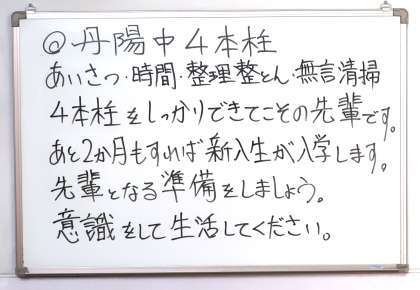 ◎丹陽中4本柱
あいさつ・時間・整理整とん・無言清掃
4本柱をしっかりできてこその先輩です。
あと2か月もすれば新入生が入学します。
先輩となる準備をしましょう。
意識をして生活してください。